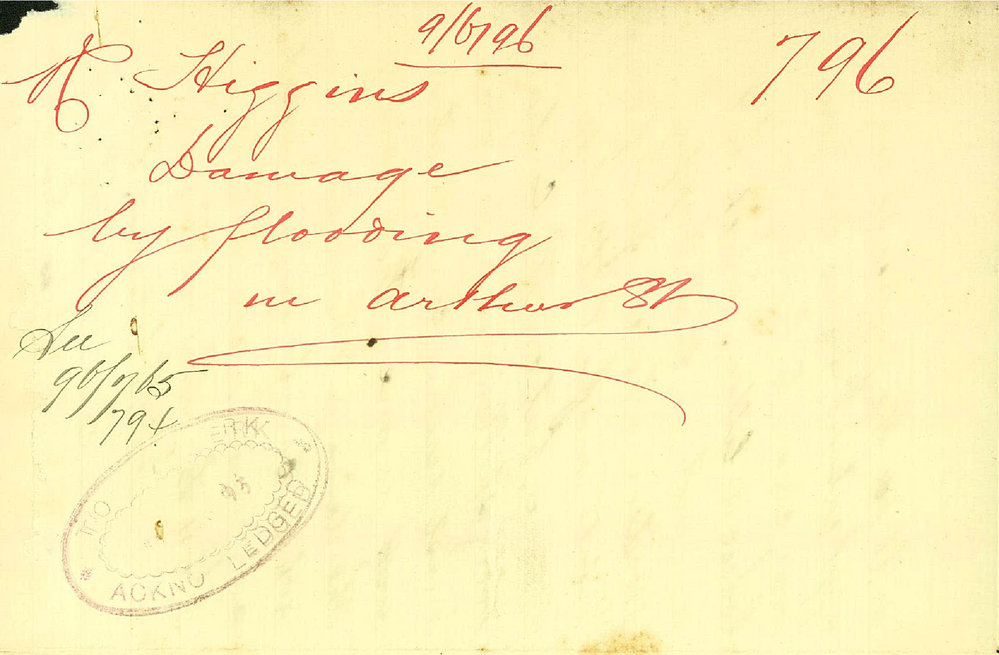 9/6/96
796
Higgins
Damage
by flooding
in Arthur St
See
96/765
794
ACKNO LEDGED